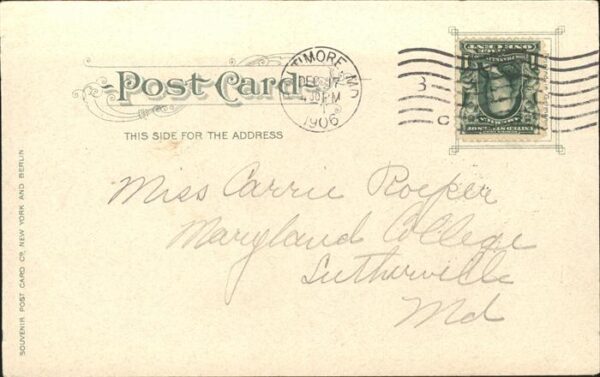 Post Card
THIS SIDE FOR THE ADDRESS
BALTIMORE, MD.
DEC
PM
1906
ONE CENT
Miss Carrie Roeper
Maryland College
Lutherville
Md
SOUVENIR POST CARD Co., NEW YORK AND BERLIN